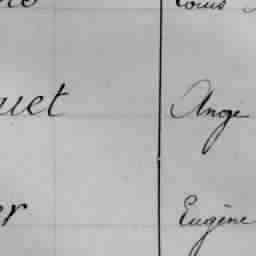 Louis
uet Ange
er Eugène